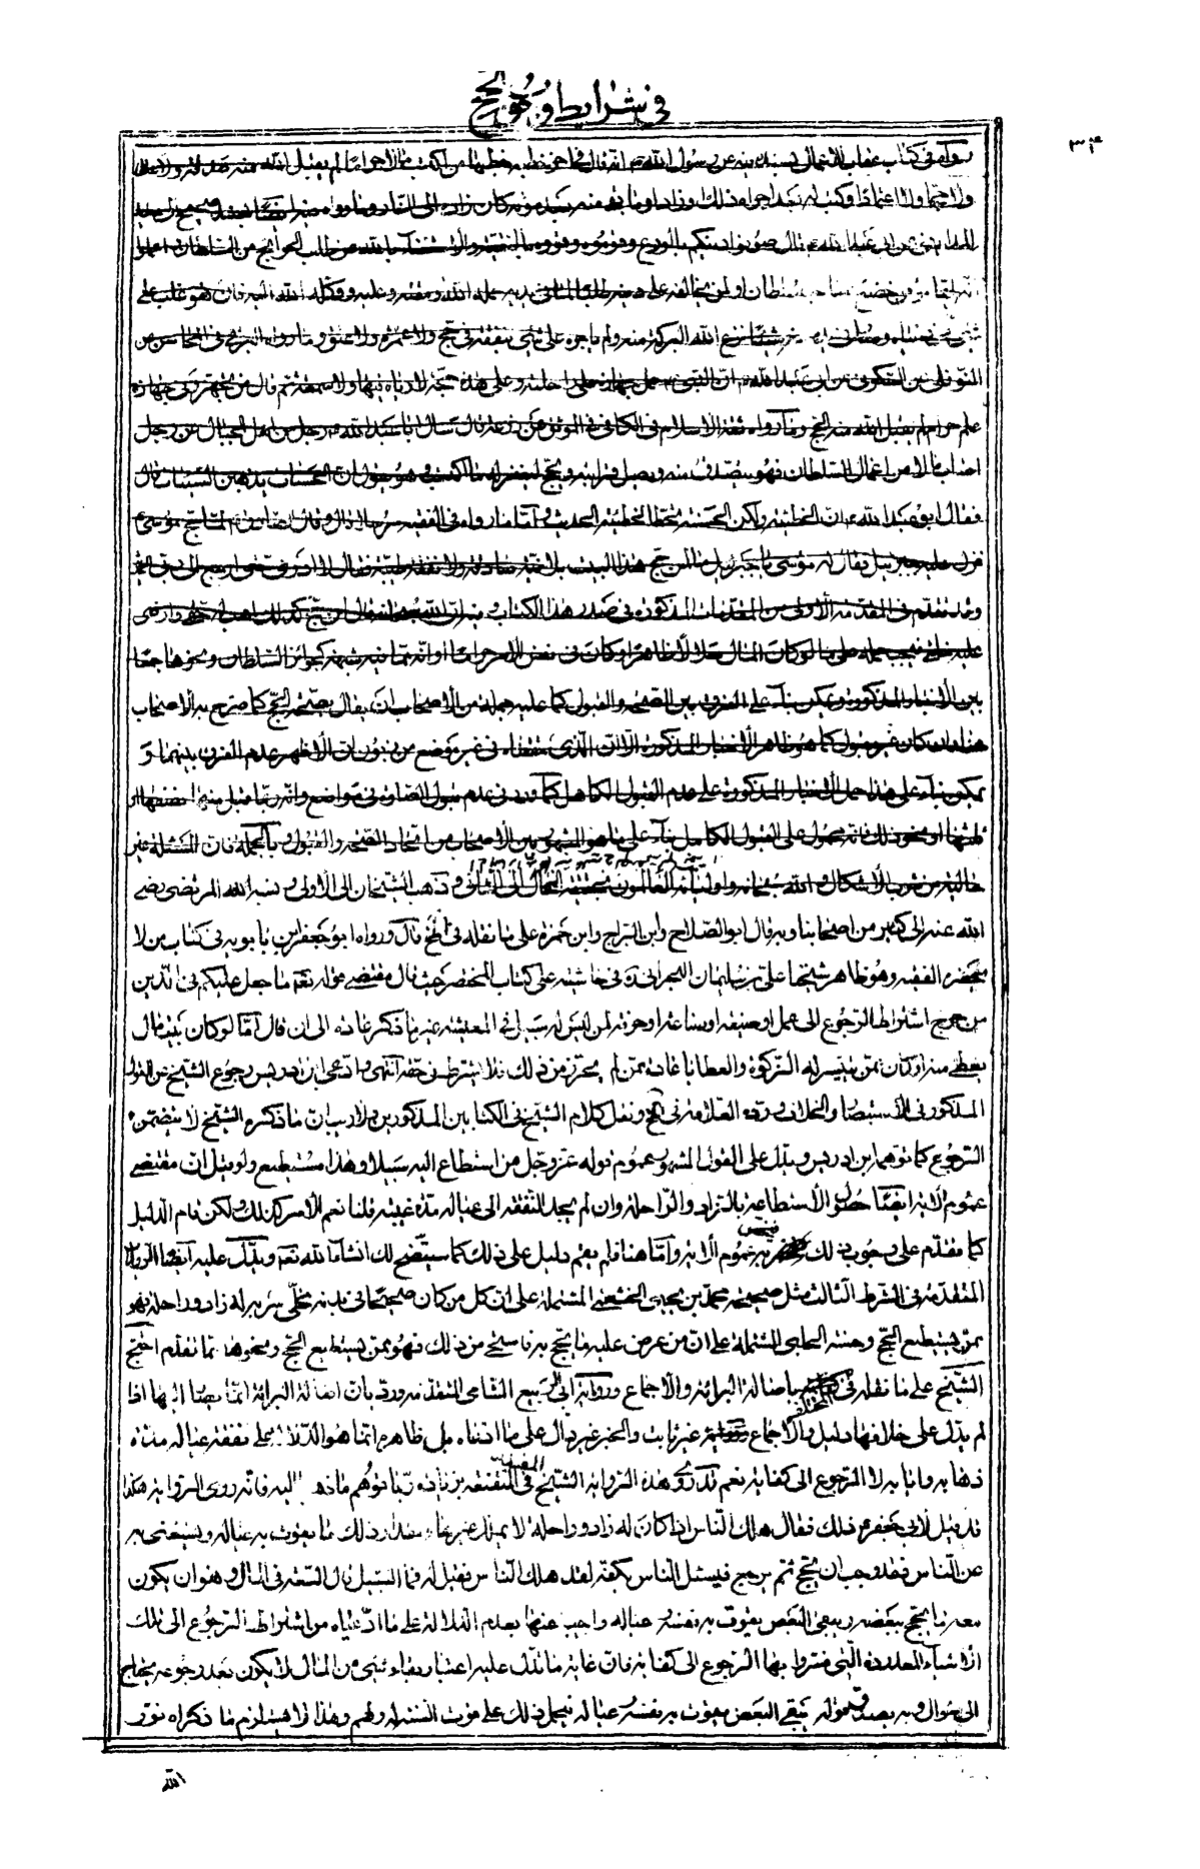 في شرايط وجوب الحج
٣٠۴
رواه في كتاب عقاب الاعمال بسنده فيه عن رسول الله انه قال في اخر خطبة خطبها من اكتسب مالا حراما لم يقبل الله منه صدقة ولا عتقا
ولا حجا ولا اعتمارا وكتب له بعدد اجزاء ذلك اوزارا وما بقي منه بعد موته كان زاده الى النار وما رواه فيه ايضا
عن ابي عبد الله قال صونوا دينكم بالورع وقووه بالتقية والاستغناء بالله عن طلب الحوائج من السلطان واعلموا
انه ايما مؤمن خضع لصاحب سلطان او لمن يخالفه على دينه طلبا لما في يديه اخمله الله ومقته عليه ووكله الله اليه فان هو غلب على
شيء من دنياه وصار في يده منه شيء نزع الله البركة منه ولم ياجره على شيء ينفقه في حج ولا عمرة ولا عتق وما رواه البرقي في المحاسن عن
النوفلي عن السكوني عن ابي عبد الله ان النبي حمل جهازه على راحلته وقال هذه حجة لا رياء فيها ولا سمعة ثم قال من تجهز وفي جهازه
علم حرام لم يقبل الله منه الحج وما رواه ثقة الاسلام في الكافي في الموثق عن زرعة قال سأل ابا عبد الله رجل من اهل الجبال عن رجل
اصاب مالا من اعمال السلطان فهو يتصدق منه ويصل قرابته ويحج ليغفر له ما اكتسب وهو يقول ان الحسنات يذهبن السيئات قال
فقال ابو عبد الله ان الخطيئة لا تكفر الخطيئة ولكن الحسنة تحط الخطيئة الحديث واما ما رواه في الفقيه مرسلا قال وقال الصادق لما حج موسى
نزل عليه جبرئيل فقال له موسى يا جبرئيل ما لمن حج هذا البيت بلا نية صادقة ولا نفقة طيبة فقال لا ادري حتى ارجع الى ربي الخ
وقد تقدم في المقدمة الاولى من المقدمات المذكورة في صدر هذا الكتاب
عليه خلقي فيجب حمله على ما لو كان المال حلالا ظاهرا وكان في نفس الامر حراما او انه مما فيه شبهة كجوائز السلطان ونحوها جمعا
بين الاخبار المذكورة ويمكن بناء على الفرق بين الصحة والقبول كما عليه جملة من الاصحاب ان يقال بصحة الحج كما صرح به الاصحاب
هنا وان كان غير مقبول كما هو ظاهر الاخبار المذكورة الا ان الذي حققناه في غير موضع من زبرنا ان الاظهر عدم الفرق بينهما و
يمكن بناء على هذا حمل الاخبار المذكورة على عدم القبول الكامل كما ورد في عدم قبول الصلوة في مواضع وانه ربما قبل منها نصفها او
ثلثها او نحو ذلك فانه محمول على القبول الكامل بناء على ما هو المشهور بين الاصحاب من اتحاد الصحة والقبول وبالجملة فان المسئلة غير
خالية من شوب الاشكال والله سبحانه واوليائه العالمون بحقيقة الحال الى الثاني وذهب الشيخان الى الاولى ونسبه الله المرتضى رضي
الله عنه الى كثير من اصحابنا وبه قال ابو الصلاح وابن البراج وابن حمزة على ما نقله في لخ قال ورواه ابو جعفر ابن بابويه في كتاب من لا
يحضره الفقيه وهو ظاهر شيخنا علي بن سليمان البحراني ره في حاشيته على كتاب المختصر حيث قال مقتضى قوله تعم ما جعل عليكم في الدين
من حرج اشتراط الرجوع الى عمل او صنيعة او بضاعة او حرفة لمن ليس له سبيل في المعيشة غير ما ذكر عادة الى ان قال امّا لو كان بيت مال
يعطى منه او كان ممن يتيسر له الزكوة والعطايا عادة ممن لم يحترز من ذلك فلا يشترط في حقه انتهى وادعى ابن ادريس رجوع الشيخ عن القول
المذكور في الاستبصار والخلاف ورده العلامة في لخ ونقل كلام الشيخ في الكتابين المذكورين ولا ريب ان ما ذكره الشيخ لا يتضمن
الرجوع كما توهم ابن ادريس ويدل على القول المشهور عموم قوله عز وجل من استطاع اليه سبيلا وهذا مستطيع ولو قيل ان مقتضى
عموم الاية ايضا حصول الاستطاعة بالزاد والراحلة وان لم يجد النفقة الى عياله مدة غيبته قلنا نعم الامر كذلك ولكن قام الدليل
كما تقدم على وجوب ذلك فيخص به عموم الاية وامّا هنا فلم يقم دليل على ذلك كما سيتضح لك انشاء الله تعم ويدل عليه ايضا الرواية
المتقدمة في الشرط الثالث مثل صحيحة محمد بن يحيى الخثعمي المشتملة على ان كل من كان صحيحا في بدنه مخلّى سربه له زاد وراحلة فهو
ممن يستطيع الحج وحسنة الحلبي المشتملة على ان من عرض عليه ما يحج به فاستحى من ذلك فهو ممن يستطيع الحج ونحوها مما تقدم احتج
الشيخ على ما نقله في الخلاف باصالة البرائة والاجماع ورواية ابي الربيع الشامي المتقدمة ورد بان اصالة البرائة انما يصار اليها اذا
لم يدل على خلافها دليل والاجماع غير ثابت والخبر غير دال على ما ادعاه بل ظاهره انما هو الدلالة على نفقة عياله مدة
ذهابه وايابه لا الرجوع الى كفاية نعم قد روى هذه الرواية الشيخ المفيد في المقنعة بزيادة ربما توهم ما ذهب اليه فانه روى الرواية هكذا
قد قيل لابي جعفر ذلك فقال هلك الناس اذا كان له زاد وراحلة لا يملك غيرهما ومقدار ذلك مما يقوت به عياله ويستغني به
عن الناس فقد وجب ان يحج ثم يرجع فيسئل الناس بكفه لقد هلك الناس فقيل له فما السبيل قال السعة في المال وهو ان يكون
معه ما يحج ببعضه ويبقى البعض يقوت به نفسه وعياله واجيب عنها بعدم الدلالة على ما ادعياه من اشتراط الرجوع الى تلك
الاشياء المعدودة التي فسروا بها الرجوع الى كفاية فان غاية ما تدل عليه اعتبار بقاء شيء من المال لا يكون بعد رجوعه يحتاج
الى سؤال وبه يصدق قوله يبقى البعض يقوت به نفسه وعياله فيحمل ذلك على قوت السنة له ولهم وهذا لا يستلزم ما ذكراه نور
الله